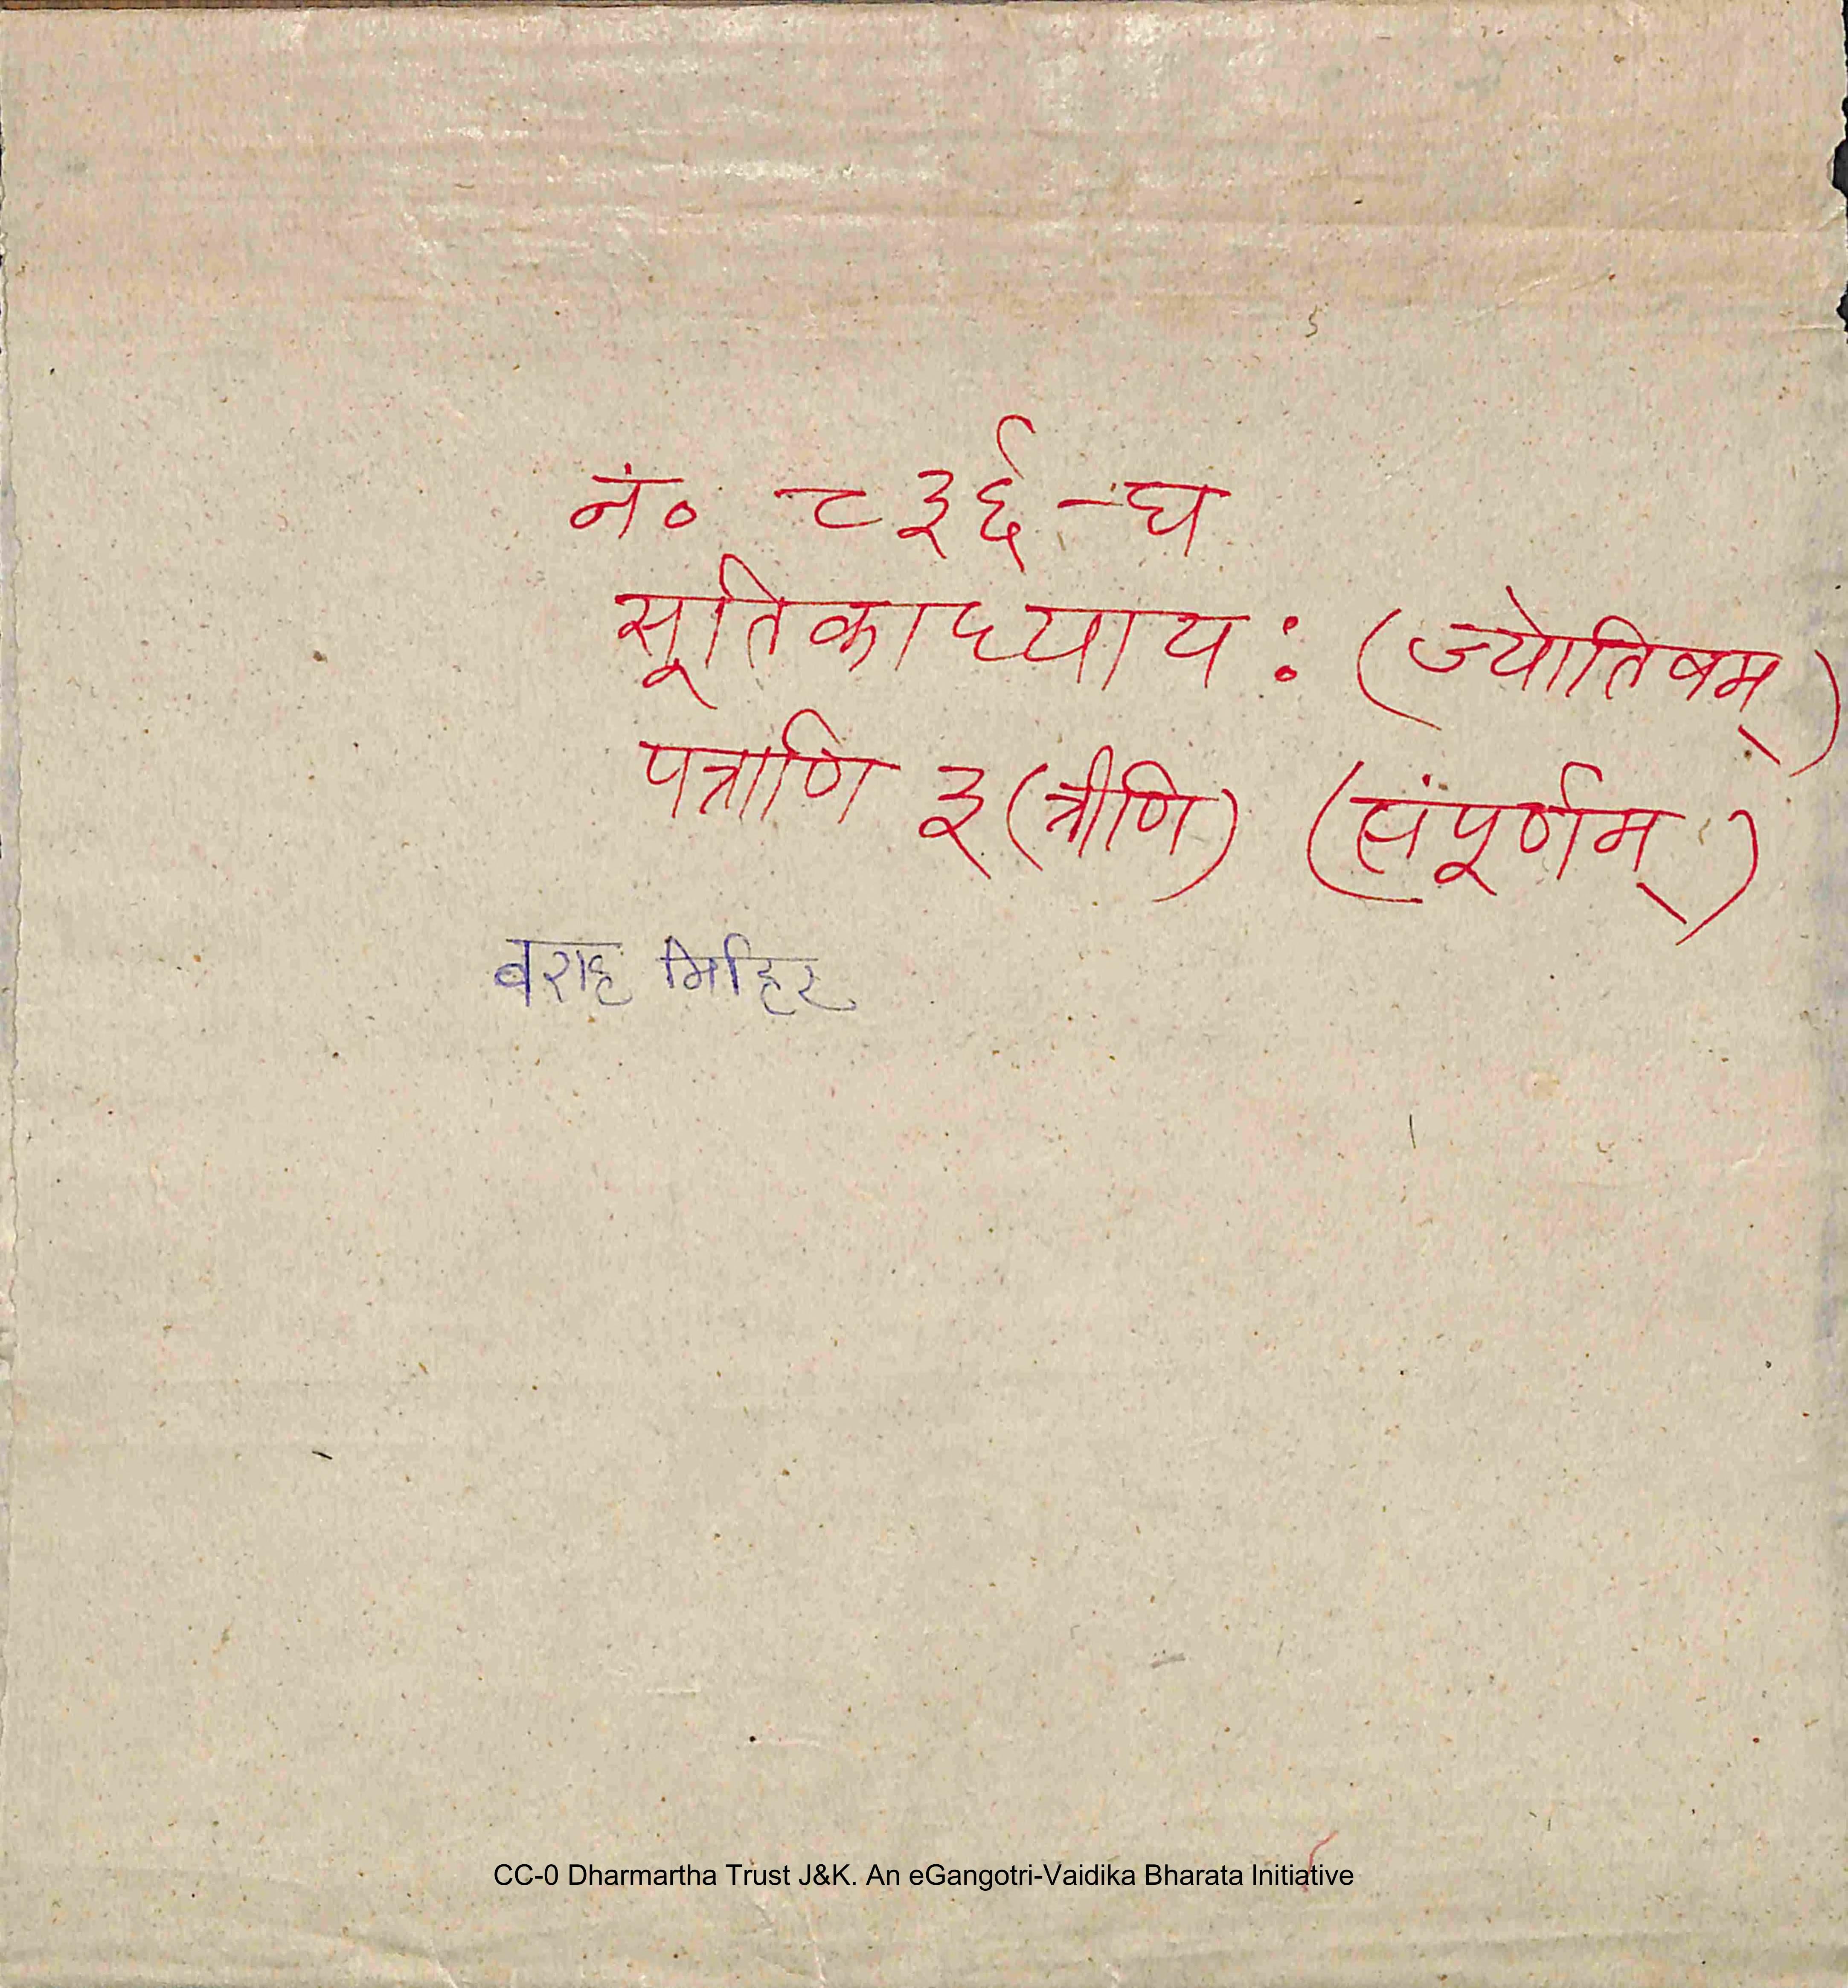 नं० ८३६-घ
सूतिकाध्याय: (ज्योतिषम्)
पत्राणि ३ (त्रीणि) (संपूर्णम्)
वराह मिहिर
CC-0 Dharmartha Trust J&K. An eGangotri-Vaidika Bharata Initiative